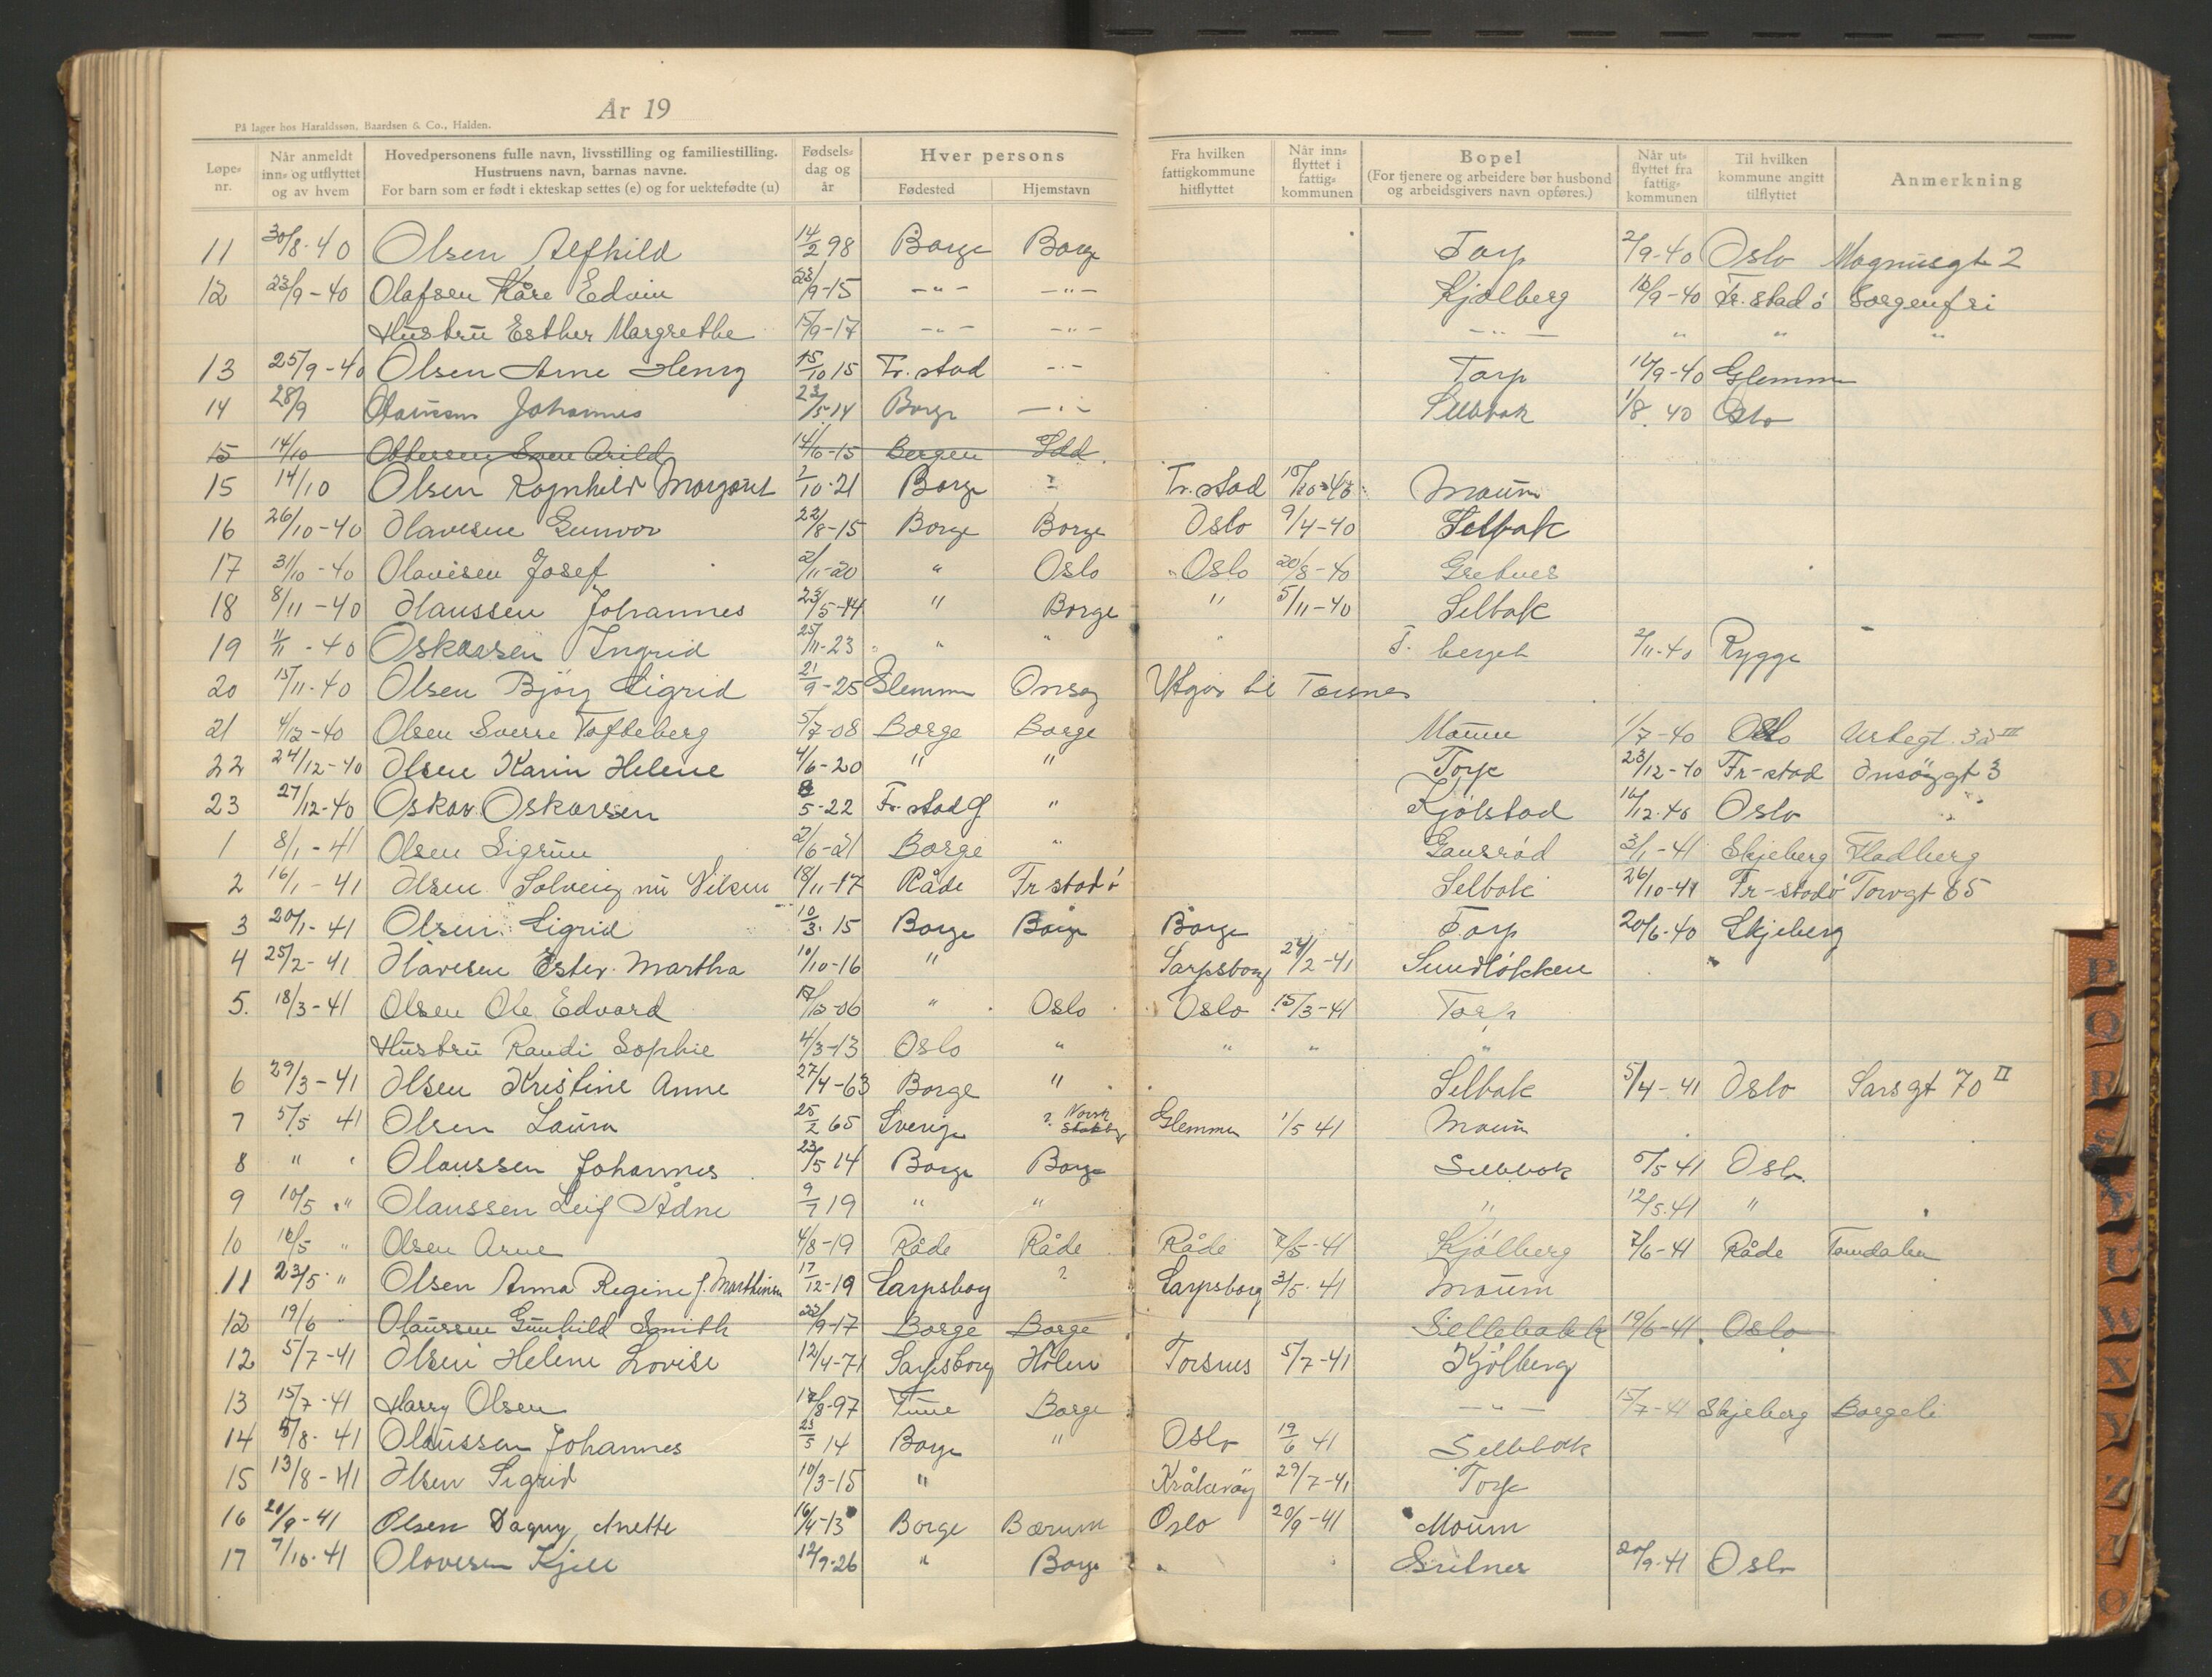 År 19
På lager hos Haraldssøn, Baardsen & Co., Halden.
Løpe-nr. | Når anmeldt inn- og utflyttet og av hvem | Hovedpersonens fulle navn, livsstilling og familiestilling. Hustruens navn, barnas navne. For barn som er født i ekteskap settes (e) og for uektefødte (u) | Fødsels-dag og år | Hver persons Fødested | Hjemstavn | Fra hvilken fattigkommune hitflyttet | Når inn-flyttet i fattig-kommunen | Bopel (For tjenere og arbeidere bør husbond og arbeidsgivers navn opføres.) | Når ut-flyttet fra fattig-kommunen | Til hvilken kommune angitt tilflyttet | Anmerkning
11 30/8-40 Olsen Alfhild 14/2 98 Borge Borge Torp 2/9-40 Oslo Magnusgt 2
12 23/9-40 Olafsen Kåre Edvin 23/9-15 -"- -"- Kjølberg 18/9-40 Fr.stad ö Sorgenfri
Hustru Esther Margrethe 15/9-17 -"- -"- -"- " " "
13 25/9-40 Olsen Arne Henry 15/10 15 Fr.stad -"- Torp 14/9-40 Glemmen
14 28/9 Olaussen Johannes 23/5-14 Borge -"- Sellebak 1/8 40 Oslo
15 14/10 Ottersen Sven Arild 14/6-15 Bergen Idd
15 14/10 Olsen Ragnhild Margaret 2/10-21 Borge ? Fr.stad 15/10-40 Moum
16 26/10-40 Olavesen Gunvor 22/8-15 Borge Borge Oslo 9/4-40 Selbak
17 31/10-40 Olavesen Josef 2/11-20 " Oslo Oslo 20/8-40 Gretnes
18 8/11-40 Olaussen Johannes 23/5-14 " Borge " 5/11-40 Selbak
19 11/11-40 Oskarsen Ingrid 25/11-23 " " " T. berget 2/11-40 Rygge
20 15/11-40 Olsen Bjørg Sigrid 21/9-25 Glemmen Onsøy Utgår til Torsnes
21 4/12-40 Olsen Sverre Tofteberg 5/7-08 Borge Borge Moum 1/7-40 Oslo 3a III
22 24/12-40 Olsen Karin Helene 4/6-20 " " Torp 23/12-40 Fr-stad Onsøygt 3
23 27/12-40 Oskar Oskarsen 8/5-22 Fr.stad " Kjølstad 16/12-40 Oslo "
1 8/1-41 Olsen Sigrun 2/6-21 Borge " Gansrød 3/1-41 Skjeberg Fladberg
2 16/1-41 Olsen Solveig nu Nilsen 18/11-17 Råde Fr stad ö Selbak 26/10-41 Fr-stad ö Torvgt 65
3 20/1-41 Olsen Sigrid 10/3-15 Borge Borge Borge Torp 20/6-40 Skjeberg
4 25/2-41 Olavesen Ester Martha 10/10-16 " Sarpsborg 24/2-41 Sundløkken
5. 18/3-41 Olsen Ole Edvard -06 " Oslo Oslo 15/3-41 Torp
Hustru Randi Sophie 4/3-13 Oslo " " " "
6 29/3-41 Olsen Kristine Anne 27/4-63 Borge " Selbak 5/4-41 Oslo Sarsgt 70 II
7 5/5 41 Olsen Laura 25/2 65 Sverige ? Norsk Glemmen 1/5 41 Moum
8 " " Olaussen Johannes 23/5 14 Borge Borge Sellebak 5/5 41 Oslo
9 10/5 " Olaussen Leif Ådne 9/7 19 " " " 12/5.41 "
10 16/5 " Olsen Arne 4/8-19 Råde Råde Råde 7/5-41 Kjølberg 7/6-41 Råde Tomdalen
11 23/5 " Olsen Anna Regine f. Marthinsen 17/12-19 Sarpsborg ? Sarpsborg 3/5-41 Moum
12 19/6 " Olaussen Gunhild Smith 22/9-17 Borge Borge Sellebakk 19/6-41 Oslo
12 5/7-41 Olsen Helene Lovise 12/4-71 Sarpsborg Hølen Torsnes 5/7-41 Kjølberg
13 15/7-41 Harry Olsen 17/8-97 Tune Borge -"- 15/7-41 Skjeberg Borgeli
14 5/8-41 Olaussen Johannes 23/5 14 Borge " Oslo 19/6 41 Sellebak
15 13/8-41 Olsen Sigrid 10/3-15 " Kråkerøy 29/7-41 Torp
16 20/9-41 Olsen Dagny Anette 16/4-13 Borge Bærum Oslo 20/9-41 Moum
17 7/10-41 Olavesen Kjell 12/9-26 " Borge Gretnes 20/9-41 Oslo
P Q R U W X Y Z Æ Ø